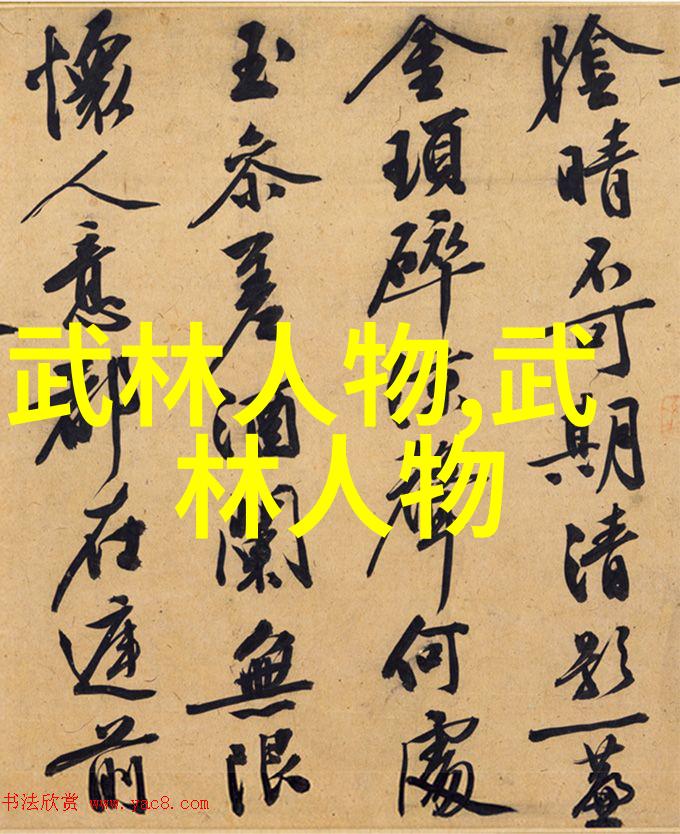 陰晴不可期清影一簾
金瑣碎涼聲何處
玉參差酒闌無限
懷人意都在庭前
武林人物,武
林人物
书法欣赏 www.yac8.com